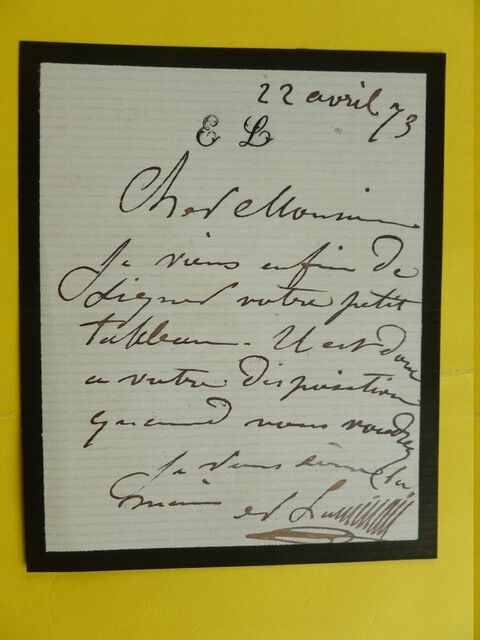 22 avril 73
E L
Cher Monsieur
Je viens enfin de
signer votre petit
tableau. Il est donc
a votre disposition
quand vous voudrez
Je vous serre la
main
ev Luminais